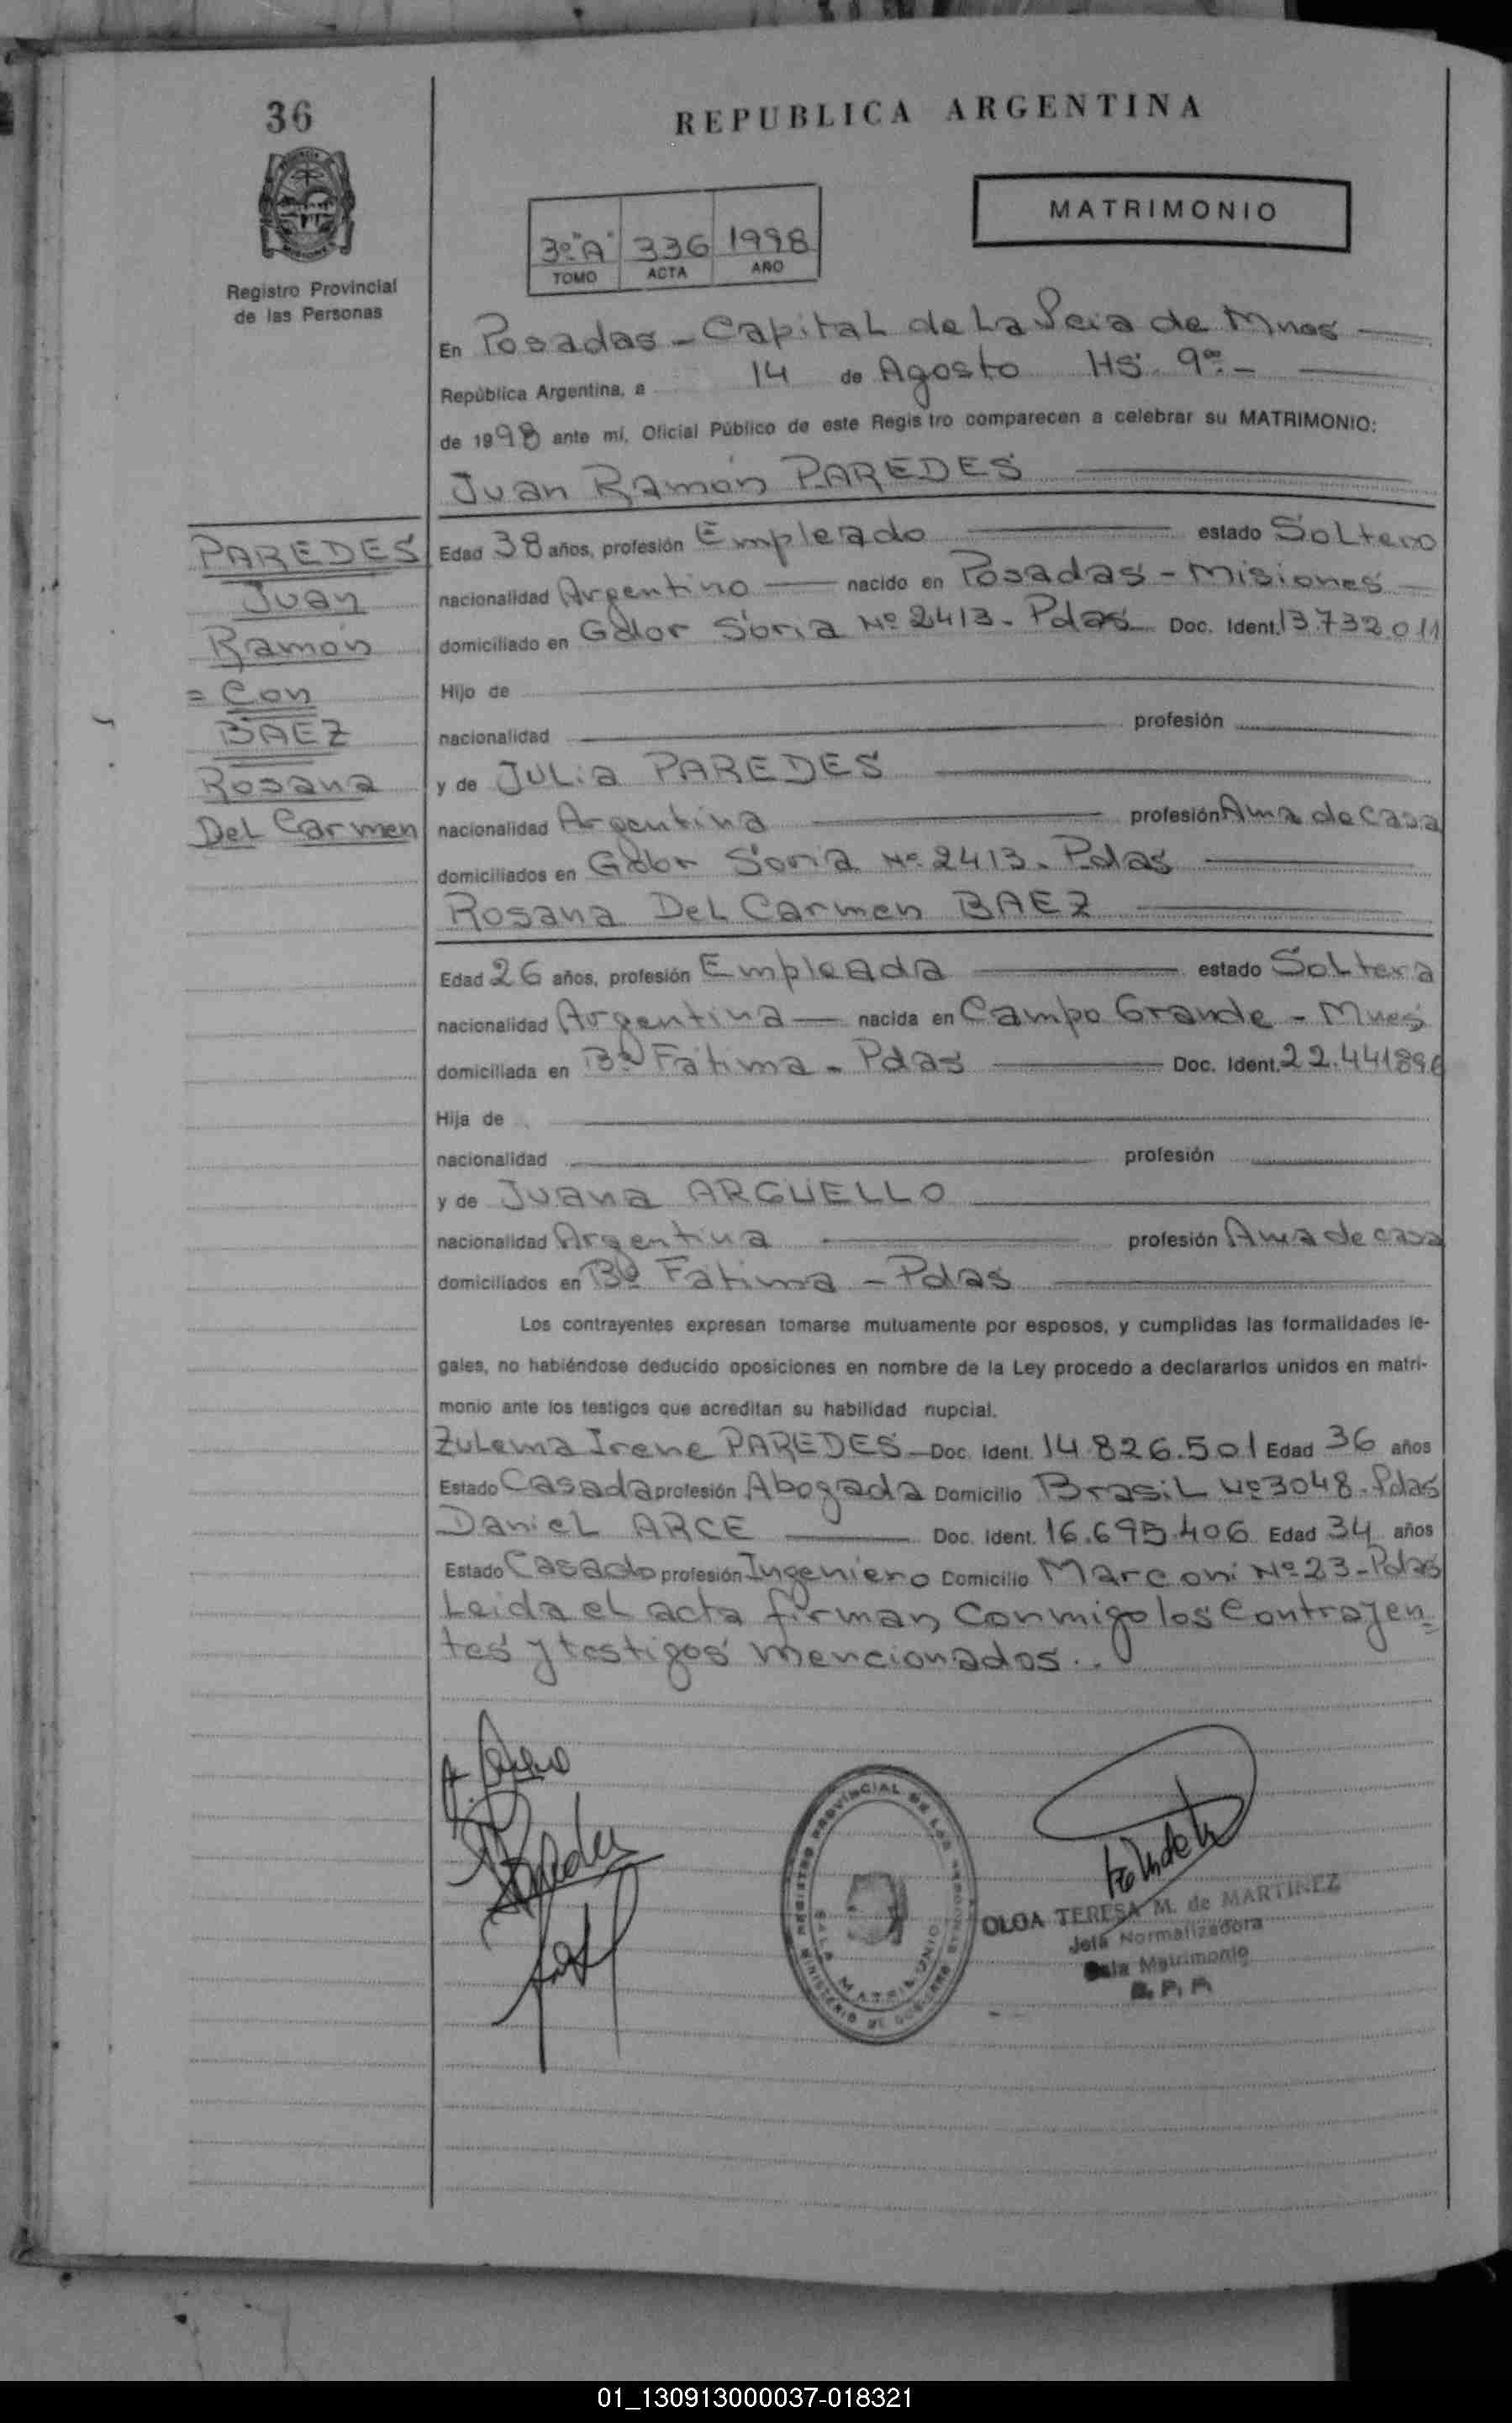 36
REPUBLICA ARGENTINA
MATRIMONIO
3º "A" 336 1998
TOMO ACTA AÑO
Registro Provincial
de las Personas
En Posadas - Capital de La Pcia de Mnes
República Argentina, a 14 de Agosto HS. 9
de 1998 ante mí, Oficial Público de este Registro comparecen a celebrar su MATRIMONIO:
Juan Ramón PAREDES
PAREDES
Juan
Ramón
= Con
BAEZ
Rosana
Del Carmen
Edad 38 años, profesión Empleado estado Soltero
nacionalidad Argentino nacido en Posadas - Misiones
domiciliado en Gdor Soria Nº 2413 - Pdas Doc. Ident. 13.732.011
Hijo de
nacionalidad profesión
y de Julia PAREDES
nacionalidad Argentina profesión Ama de casa
domiciliados en Gdor Soria Nº 2413 - Pdas
Rosana Del Carmen BAEZ
Edad 26 años, profesión Empleada estado Soltera
nacionalidad Argentina nacida en Campo Grande - Mnes
domiciliada en Bº Fátima - Pdas Doc. Ident. 22.441896
Hija de
nacionalidad profesión
y de Juana ARGÜELLO
nacionalidad Argentina profesión Ama de casa
domiciliados en Bº Fátima - Pdas
Los contrayentes expresan tomarse mutuamente por esposos, y cumplidas las formalidades le-
gales, no habiéndose deducido oposiciones en nombre de la Ley procedo a declararlos unidos en matri-
monio ante los testigos que acreditan su habilidad nupcial.
Zulema Irene PAREDES - Doc. Ident. 14.826.501 Edad 36 años
Estado Casada profesión Abogada Domicilio Brasil Nº 3048 - Pdas
Daniel ARCE Doc. Ident. 16.695.406 Edad 34 años
Estado Casado profesión Ingeniero Domicilio Marconi Nº 23 - Pdas
Leida el acta firman conmigo los Contrayen=
tes y testigos mencionados..
REGISTRO PROVINCIAL DE LAS PERSONAS
SALA MATRIMONIO
MINISTERIO DE GOBIERNO
OLGA TERESA M. de MARTINEZ
Jefa Normalizadora
Sala Matrimonio
R. P. P.
01_130913000037-018321